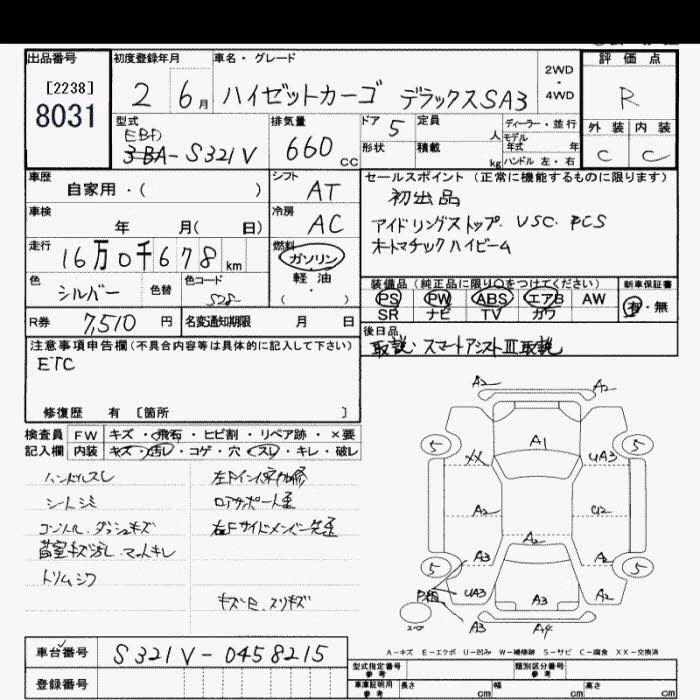 出品番号 初度登録年月 車名・グレード 評価点
[2238]
8031
2 6月 ハイゼットカーゴ デラックスSA3 2WD・4WD R
型式 排気量 ドア 5 定員 人 ディーラー・並行
EBD
3BA-S321V 660 CC
形状 積載 kg モデル年式 年 ハンドル 左・右
外装 内装
C C
車歴 自家用・( ) シフト AT
車検 年 月( 日) 冷房 AC
走行 16万0千678km 燃料 ガソリン・軽油・( )
色 シルバー 色替 色コード
R券 7,510円 名変通知期限 月 日
セールスポイント(正常に機能するものに限ります)
初出品
アイドリングストップ. VSC. PCS
オートマチックハイビーム
装備品(純正品に限り○をつけてください) 新車保証書
PS PW ABS エアB AW 有・無
SR ナビ TV カワ
後日品
取説. スマートアシストⅢ取説
注意事項申告欄(不具合内容等は具体的に記入して下さい)
ETC
修復歴 有 [箇所 ]
検査員 FW キズ・飛石・ヒビ割・リペア跡・×要
記入欄 内装 キズ・汚レ・コゲ・穴・スレ・キレ・破レ
ハンドルスレ
シートシミ
ダッシュキズ
荷室キズ汚レ マットキレ
トリムシワ
右Fサイドメンバー先歪
A2 A2
5 A1 5
XX UA3
A2 U2
A2
A3 A2
5 5
UA3 A3 A2
スペア A3 A4
A-キズ E-エクボ U-凹み W-補修跡 S-サビ C-腐食 XX-交換済
車台番号 S321V-0458215
登録番号
型式指定番号 参考 類別区分番号 参考
車庫証明用 参考 長さ cm 幅 cm 高さ cm